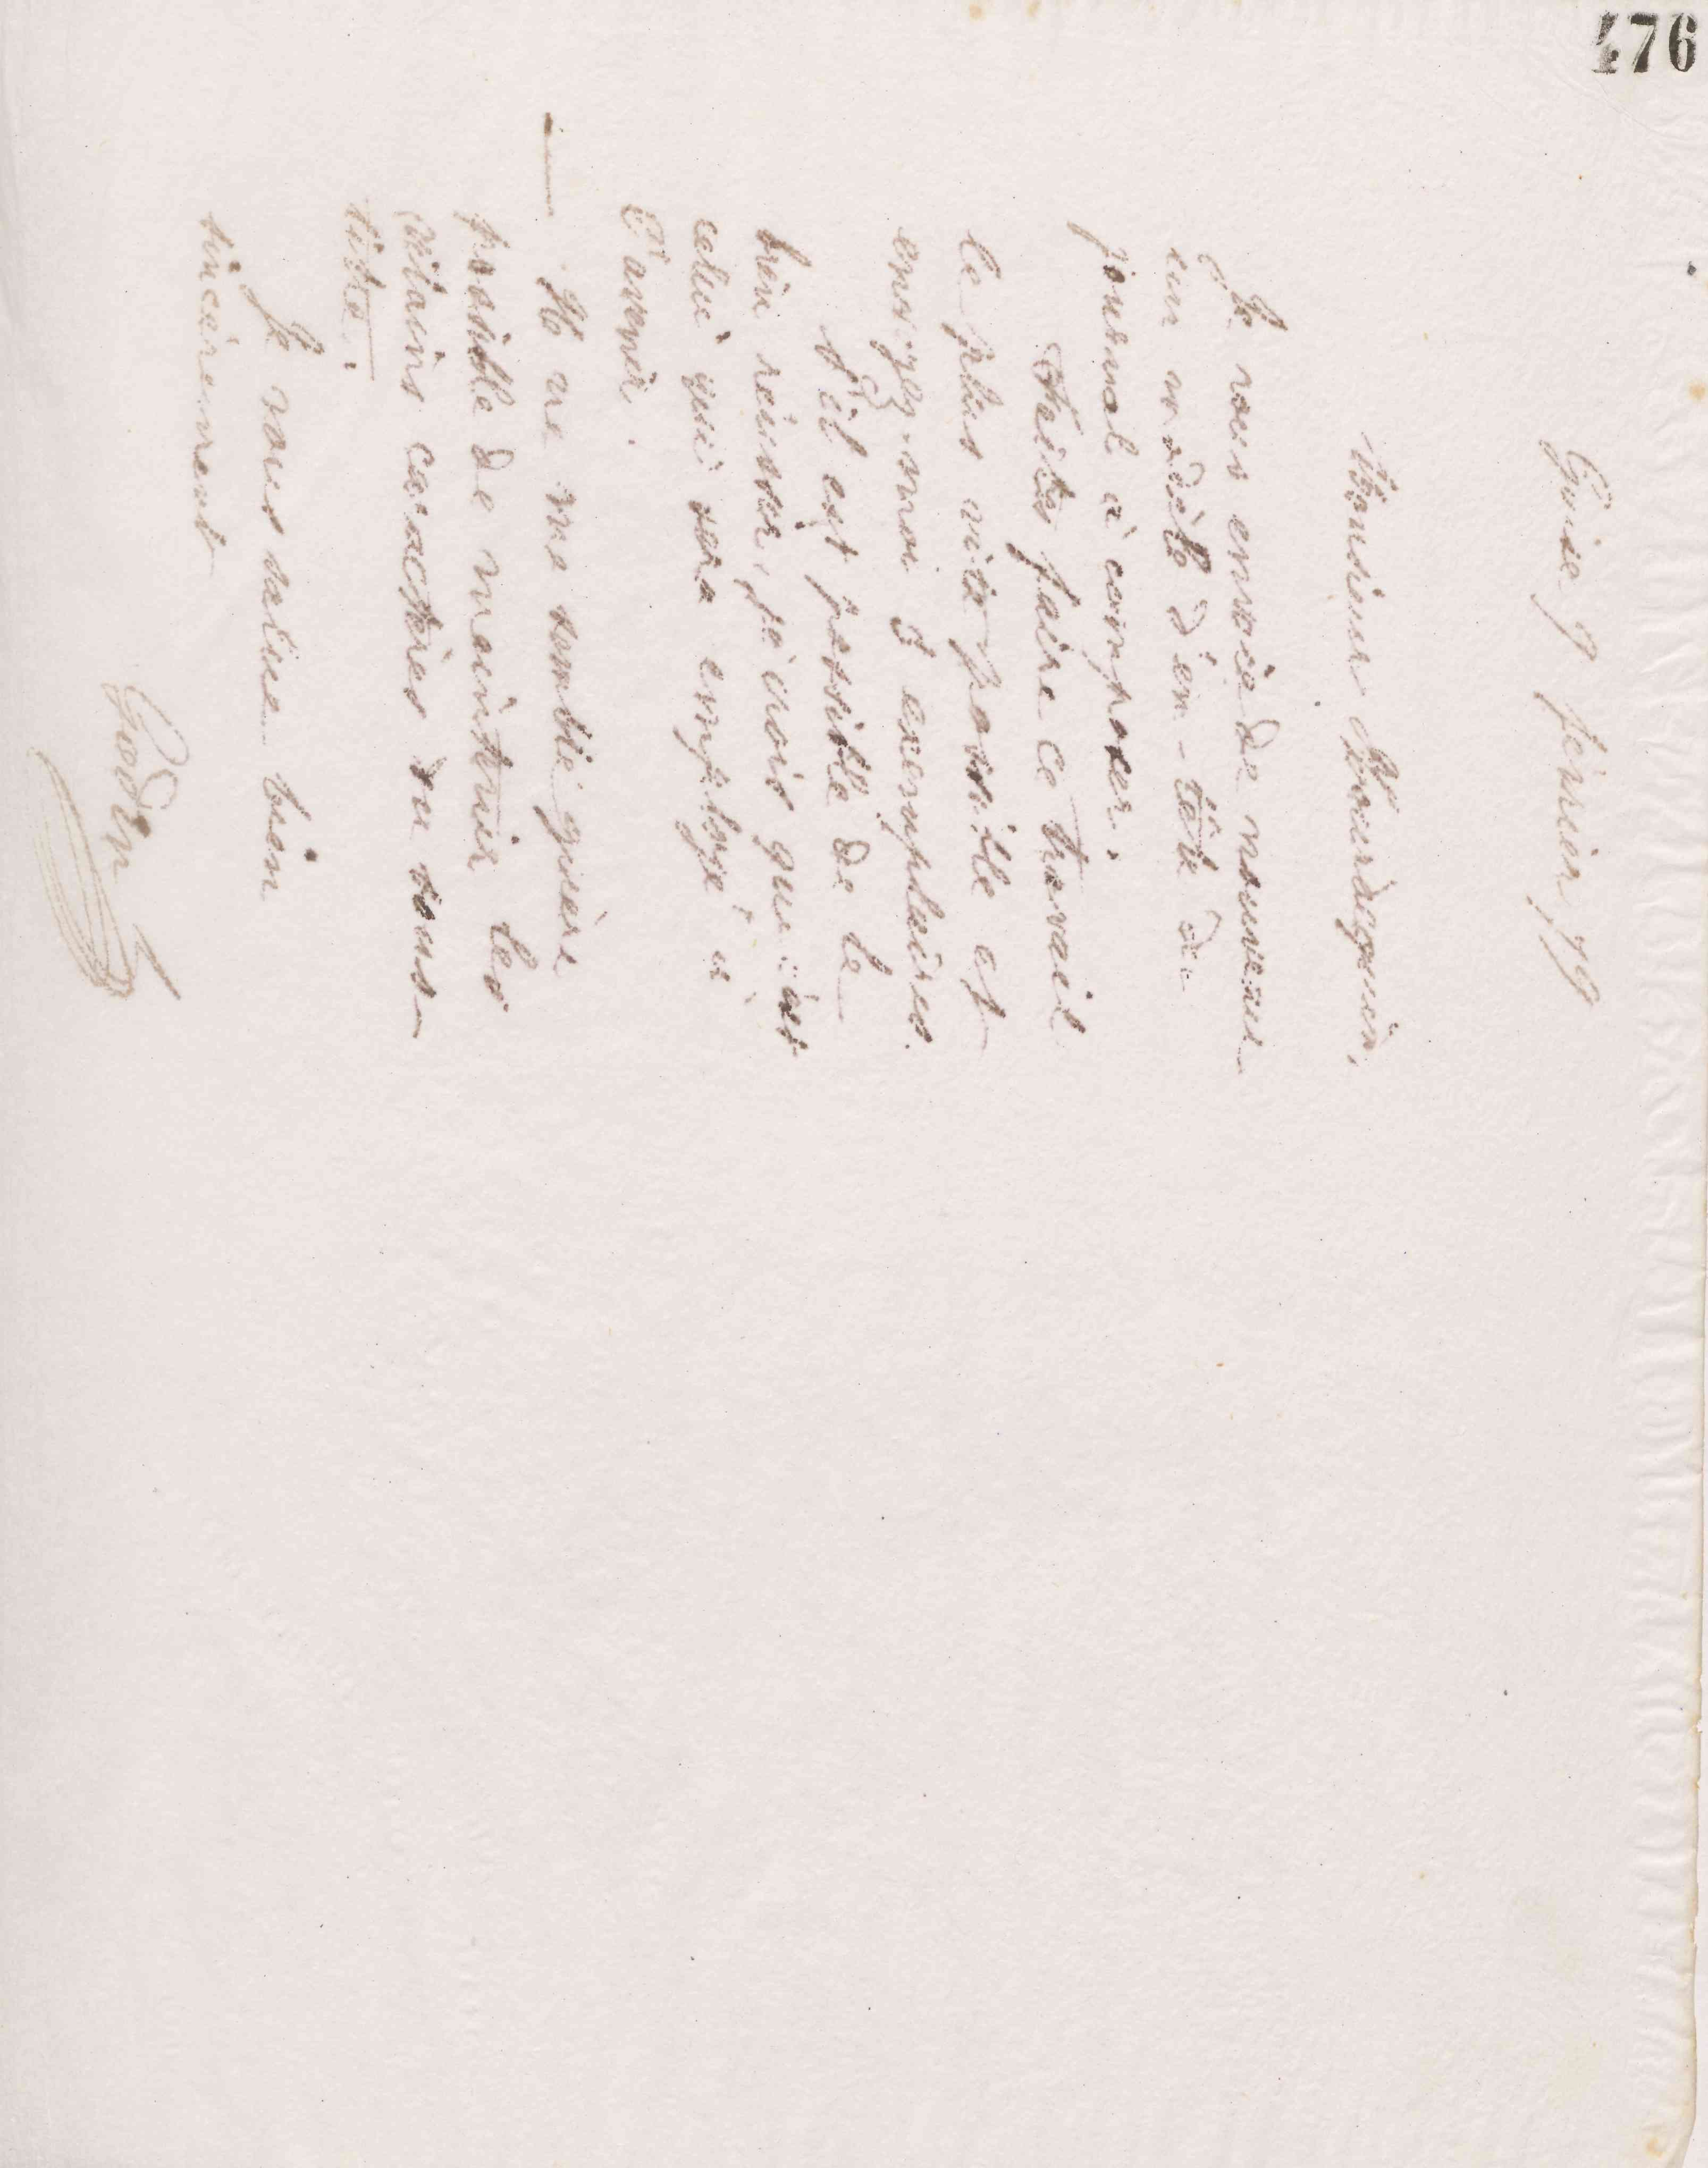 476
Guise 9 février 79
Monsieur Bourdaquin,
Je vous envoie de nouveau
un modèle d'en-tête de
journal à composer.
Faites faire ce travail
le plus vite possible et
envoyez-moi 3 exemplaires.
S'il est possible de le
bien réussir, je crois que c'est
celui qui sera employé à
l'avenir.
— Il ne me semble guère
possible de maintenir les
vilains caractères du sous-
titre.
Je vous salue bien
sincèrement
Godin